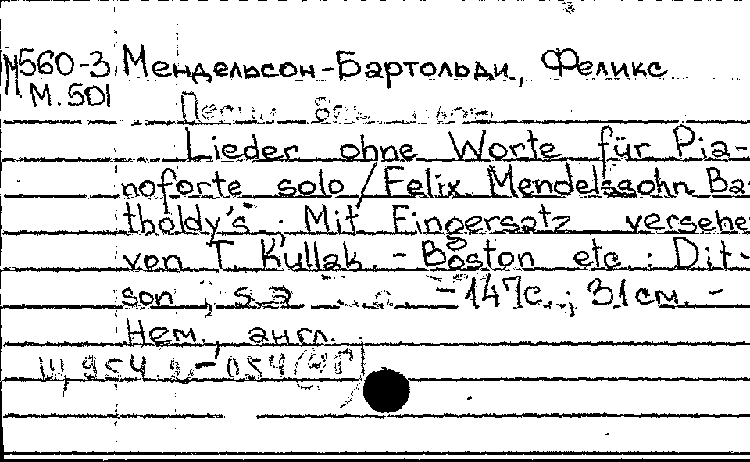 М560-3 Мендельсон-Бартольди, Феликс
М.501
Песни без слов
Lieder ohne Worte für Pia-
noforte solo / Felix Mendelssohn Ba
tholdy's ; Mit Fingersatz versehe
von T. Kullak. - Boston etc : Dit-
son ; s.a - 147с. ; 31см. -
Нем., англ.